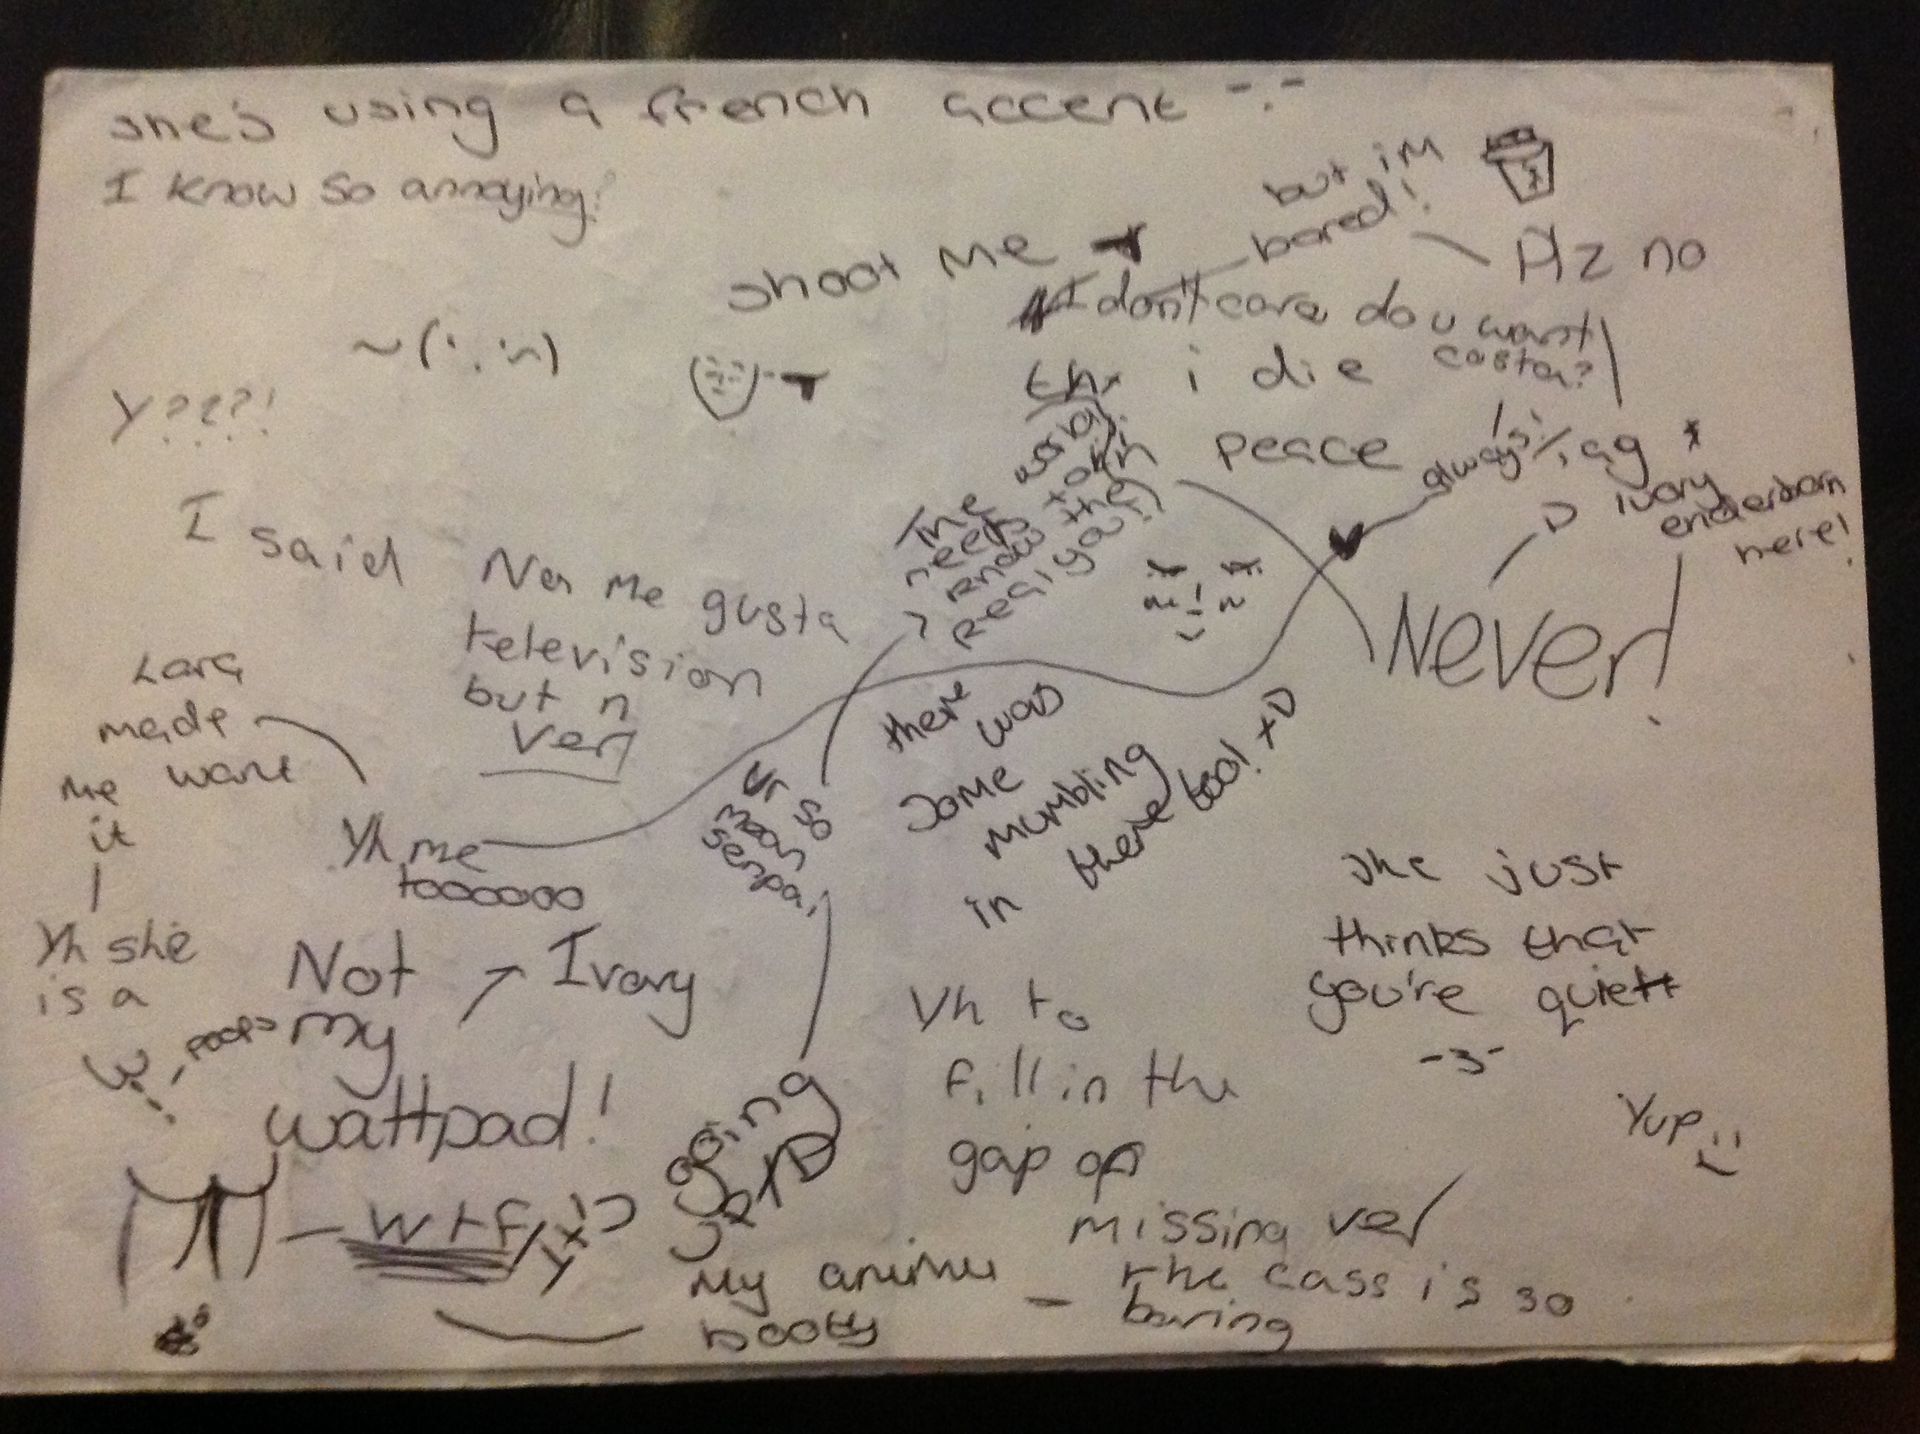 she's using a french accent -.-
I know so annoying!
but im
bored!
Plz no
shoot me
I don't care do u want
costa?
thx i die
peace
Y????!
always
Ivory
enderborn
here!
The world
needs to
know the
real you!
I said No me gusta
television
but n
ver
Never!
Lara
made
me want
it
Yh me
tooooooo
ur so
mean
senpai
there was
some
mumbling
in there too! xD
she just
thinks that
you're quiett
-3-
Yup
Yh she
is a
Not
my
wattpad!
Ivory
Yh to
fill in the
gap of
missing ver
the cass is so
boring
going
WTF
xD
My animu
booty